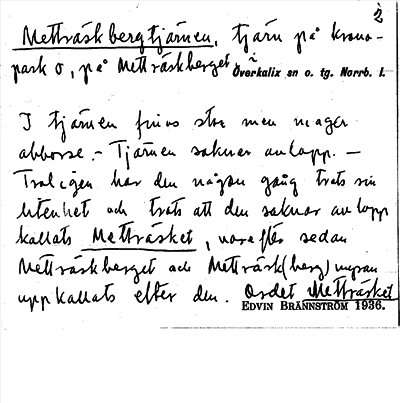 2
Metträskbergtjärnen, tjärn på krono-
park o, på Metträskberget i
Överkalix sn o. tg. Norrb. l.
I tjärnen finns stor men mager
abborre. - Tjärnen saknar avlopp. -
Troligen har den någon gång trots sin
litenhet och trots att den saknar avlopp
kallats Metträsket, varefter sedan
Metträskberget och Metträsk(berg)myran
uppkallats efter den. Ordet Metträsket
EDVIN BRÄNNSTRÖM 1936.